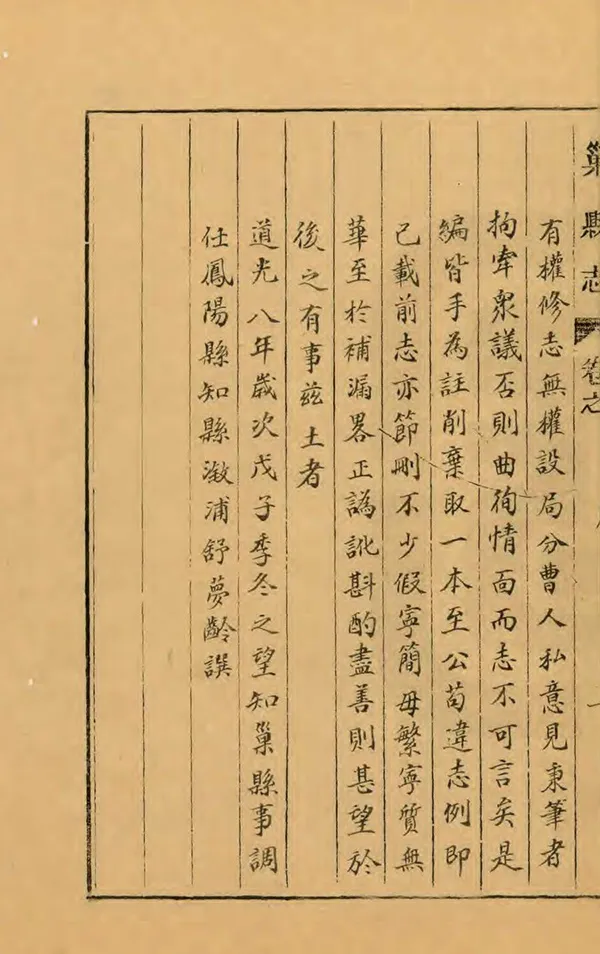 巢縣志 卷之
有權修志無權設局分曹人私意見秉筆者
拘牽衆議否則曲徇情面而志不可言矣是
編皆手為註削棄取一本至公苟違志例即
已載前志亦節刪不少假寧簡毋繁寧質無
華至於補漏畧正譌訛斟酌盡善則甚望於
後之有事兹土者
道光八年歲次戊子季冬之望知巢縣事調
任鳳陽縣知縣漵浦舒夢齡譔